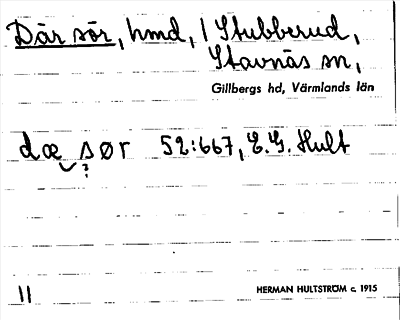 Där sör, hmd, i Stubberud,
Stavnäs sn,
Gillbergs hd, Värmlands län
dæ sør 52:667, E.G. Hult
?
11
HERMAN HULTSTRÖM c. 1915